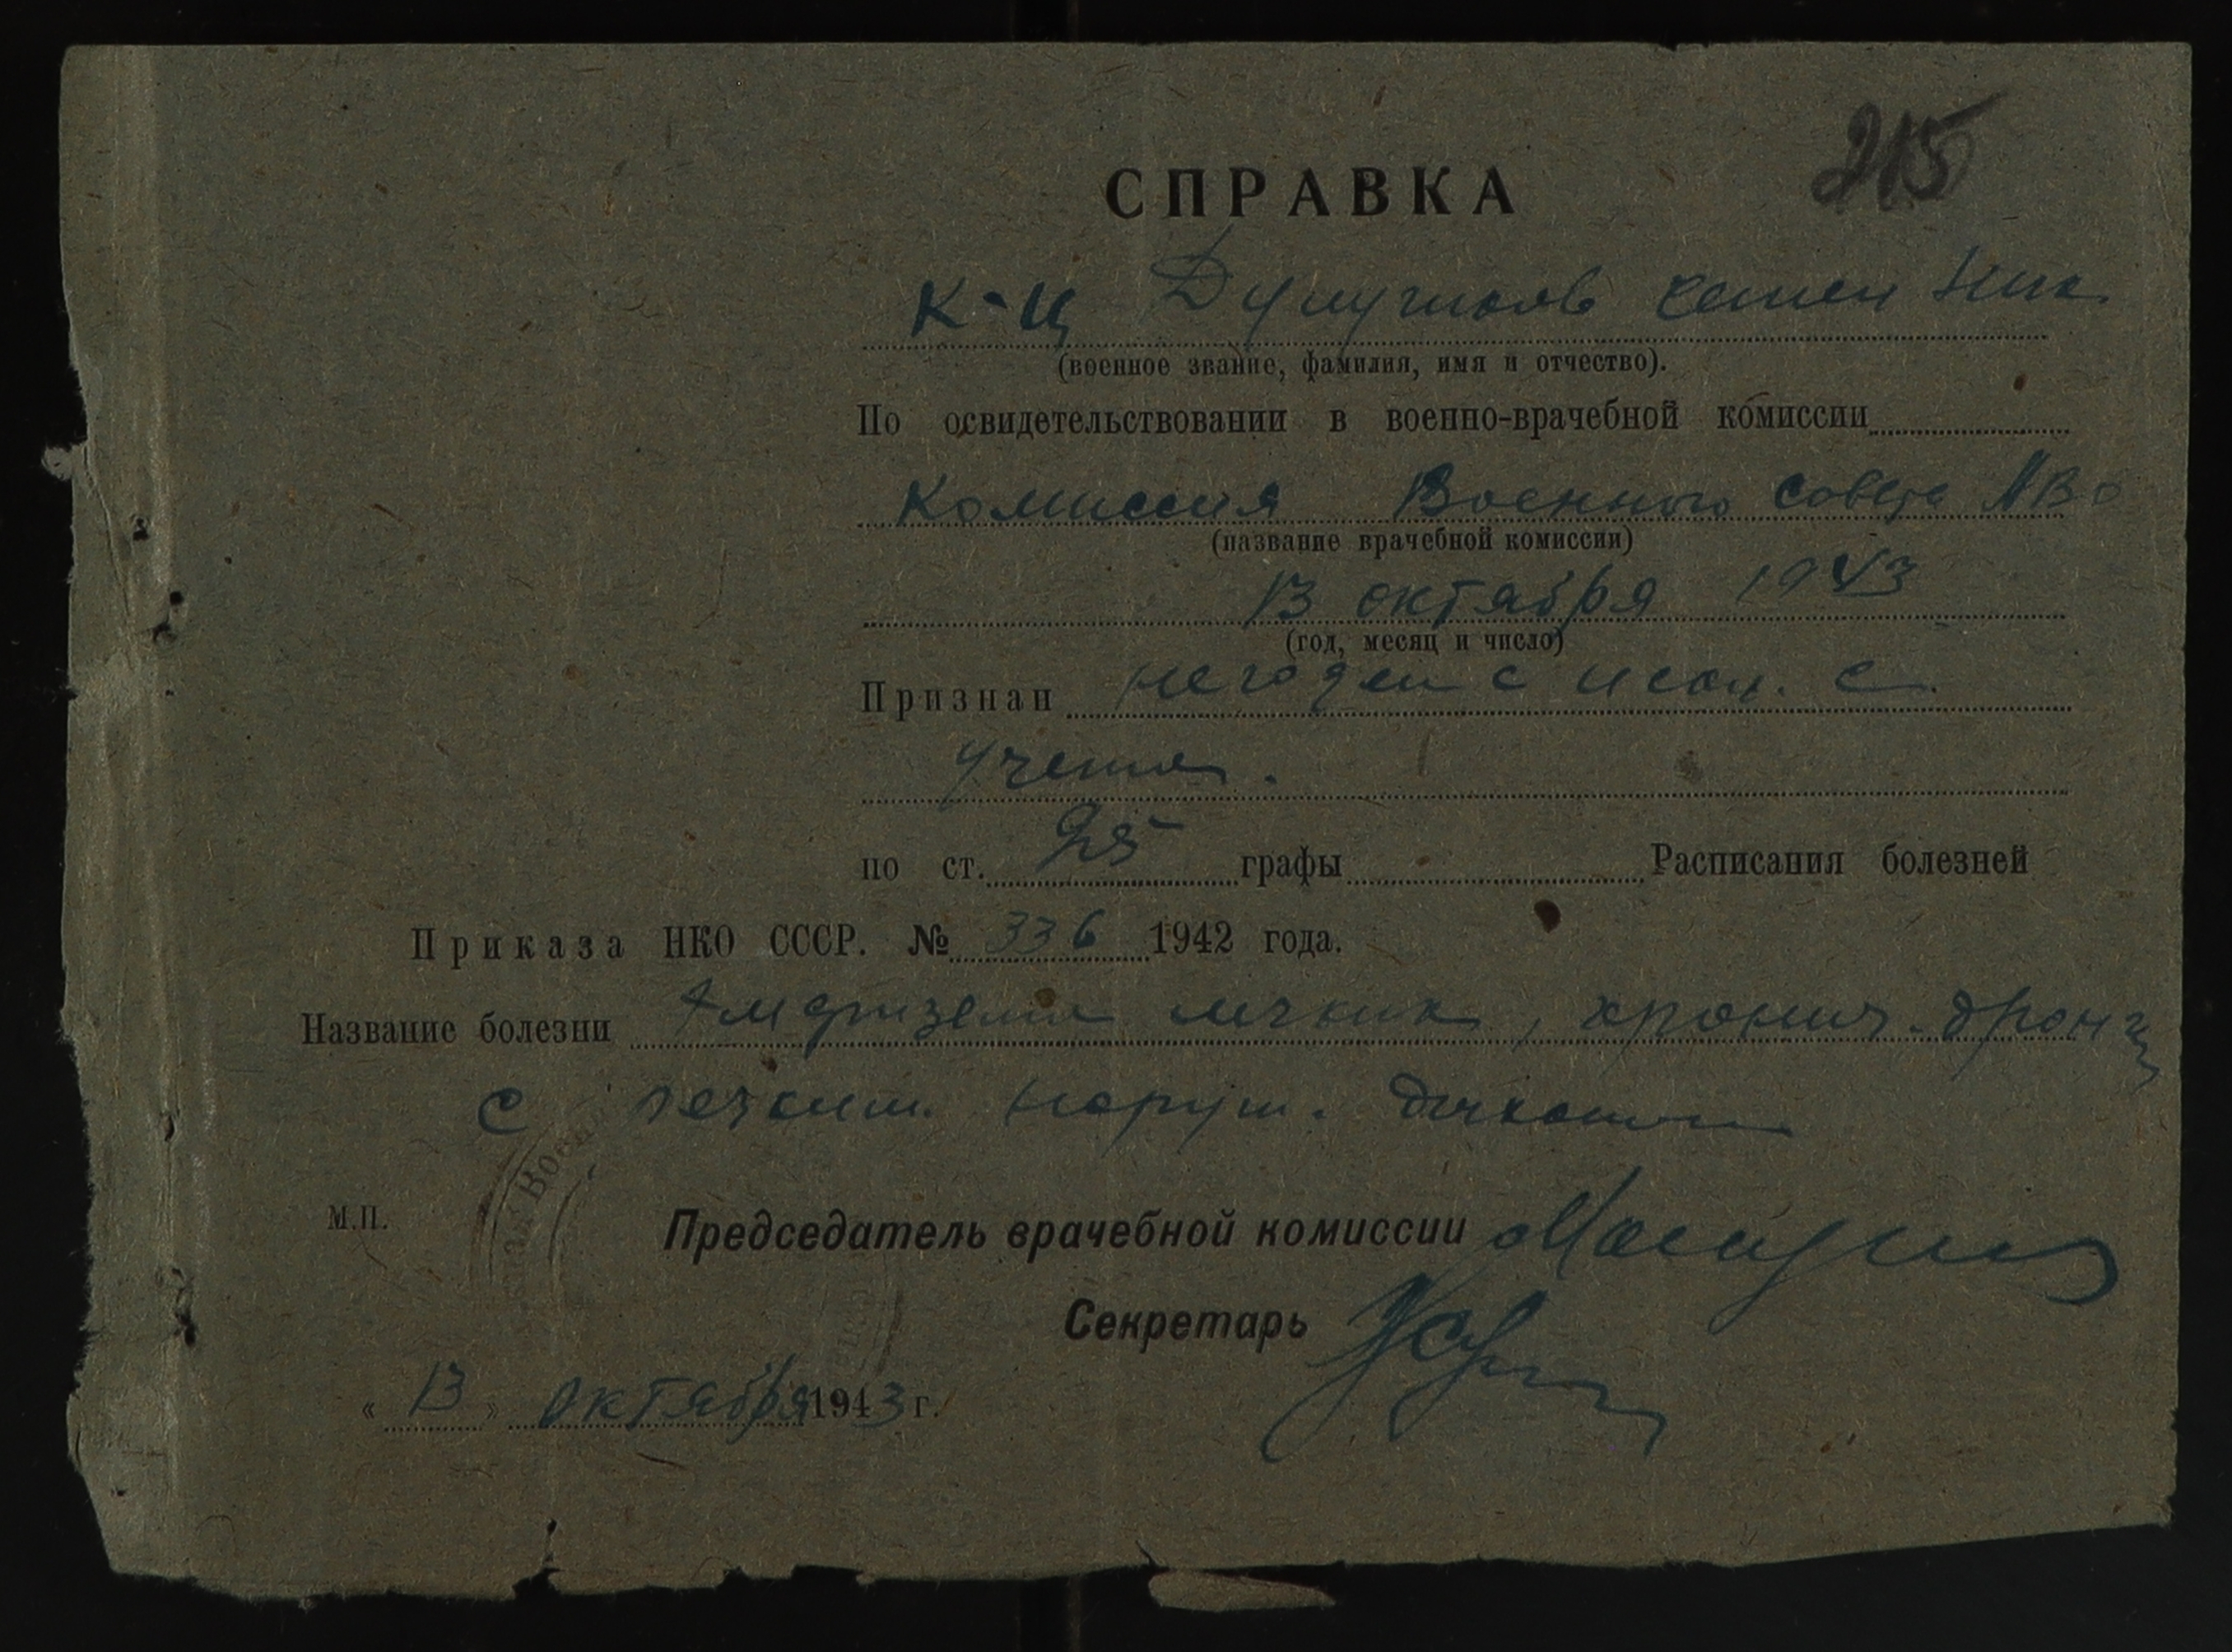 215
СПРАВКА
к-ц Семен Ник
(военное звание, фамилия, имя и отчество).
По освидетельствовании в военно-врачебной комиссии
Комиссия Военного совета
(название врачебной комиссии)
13 октября 1943
(год, месяц и число)
Признан негоден с искл. с
учета.
по ст. 25 графы Расписания болезней
Приказа НКО СССР. № 336 1942 года.
Название болезни Эмфизема легких, хронич. бронх
с наруш. дыхания
М.П.
Председатель врачебной комиссии
Секретарь
« 13 » октября 1943 г.